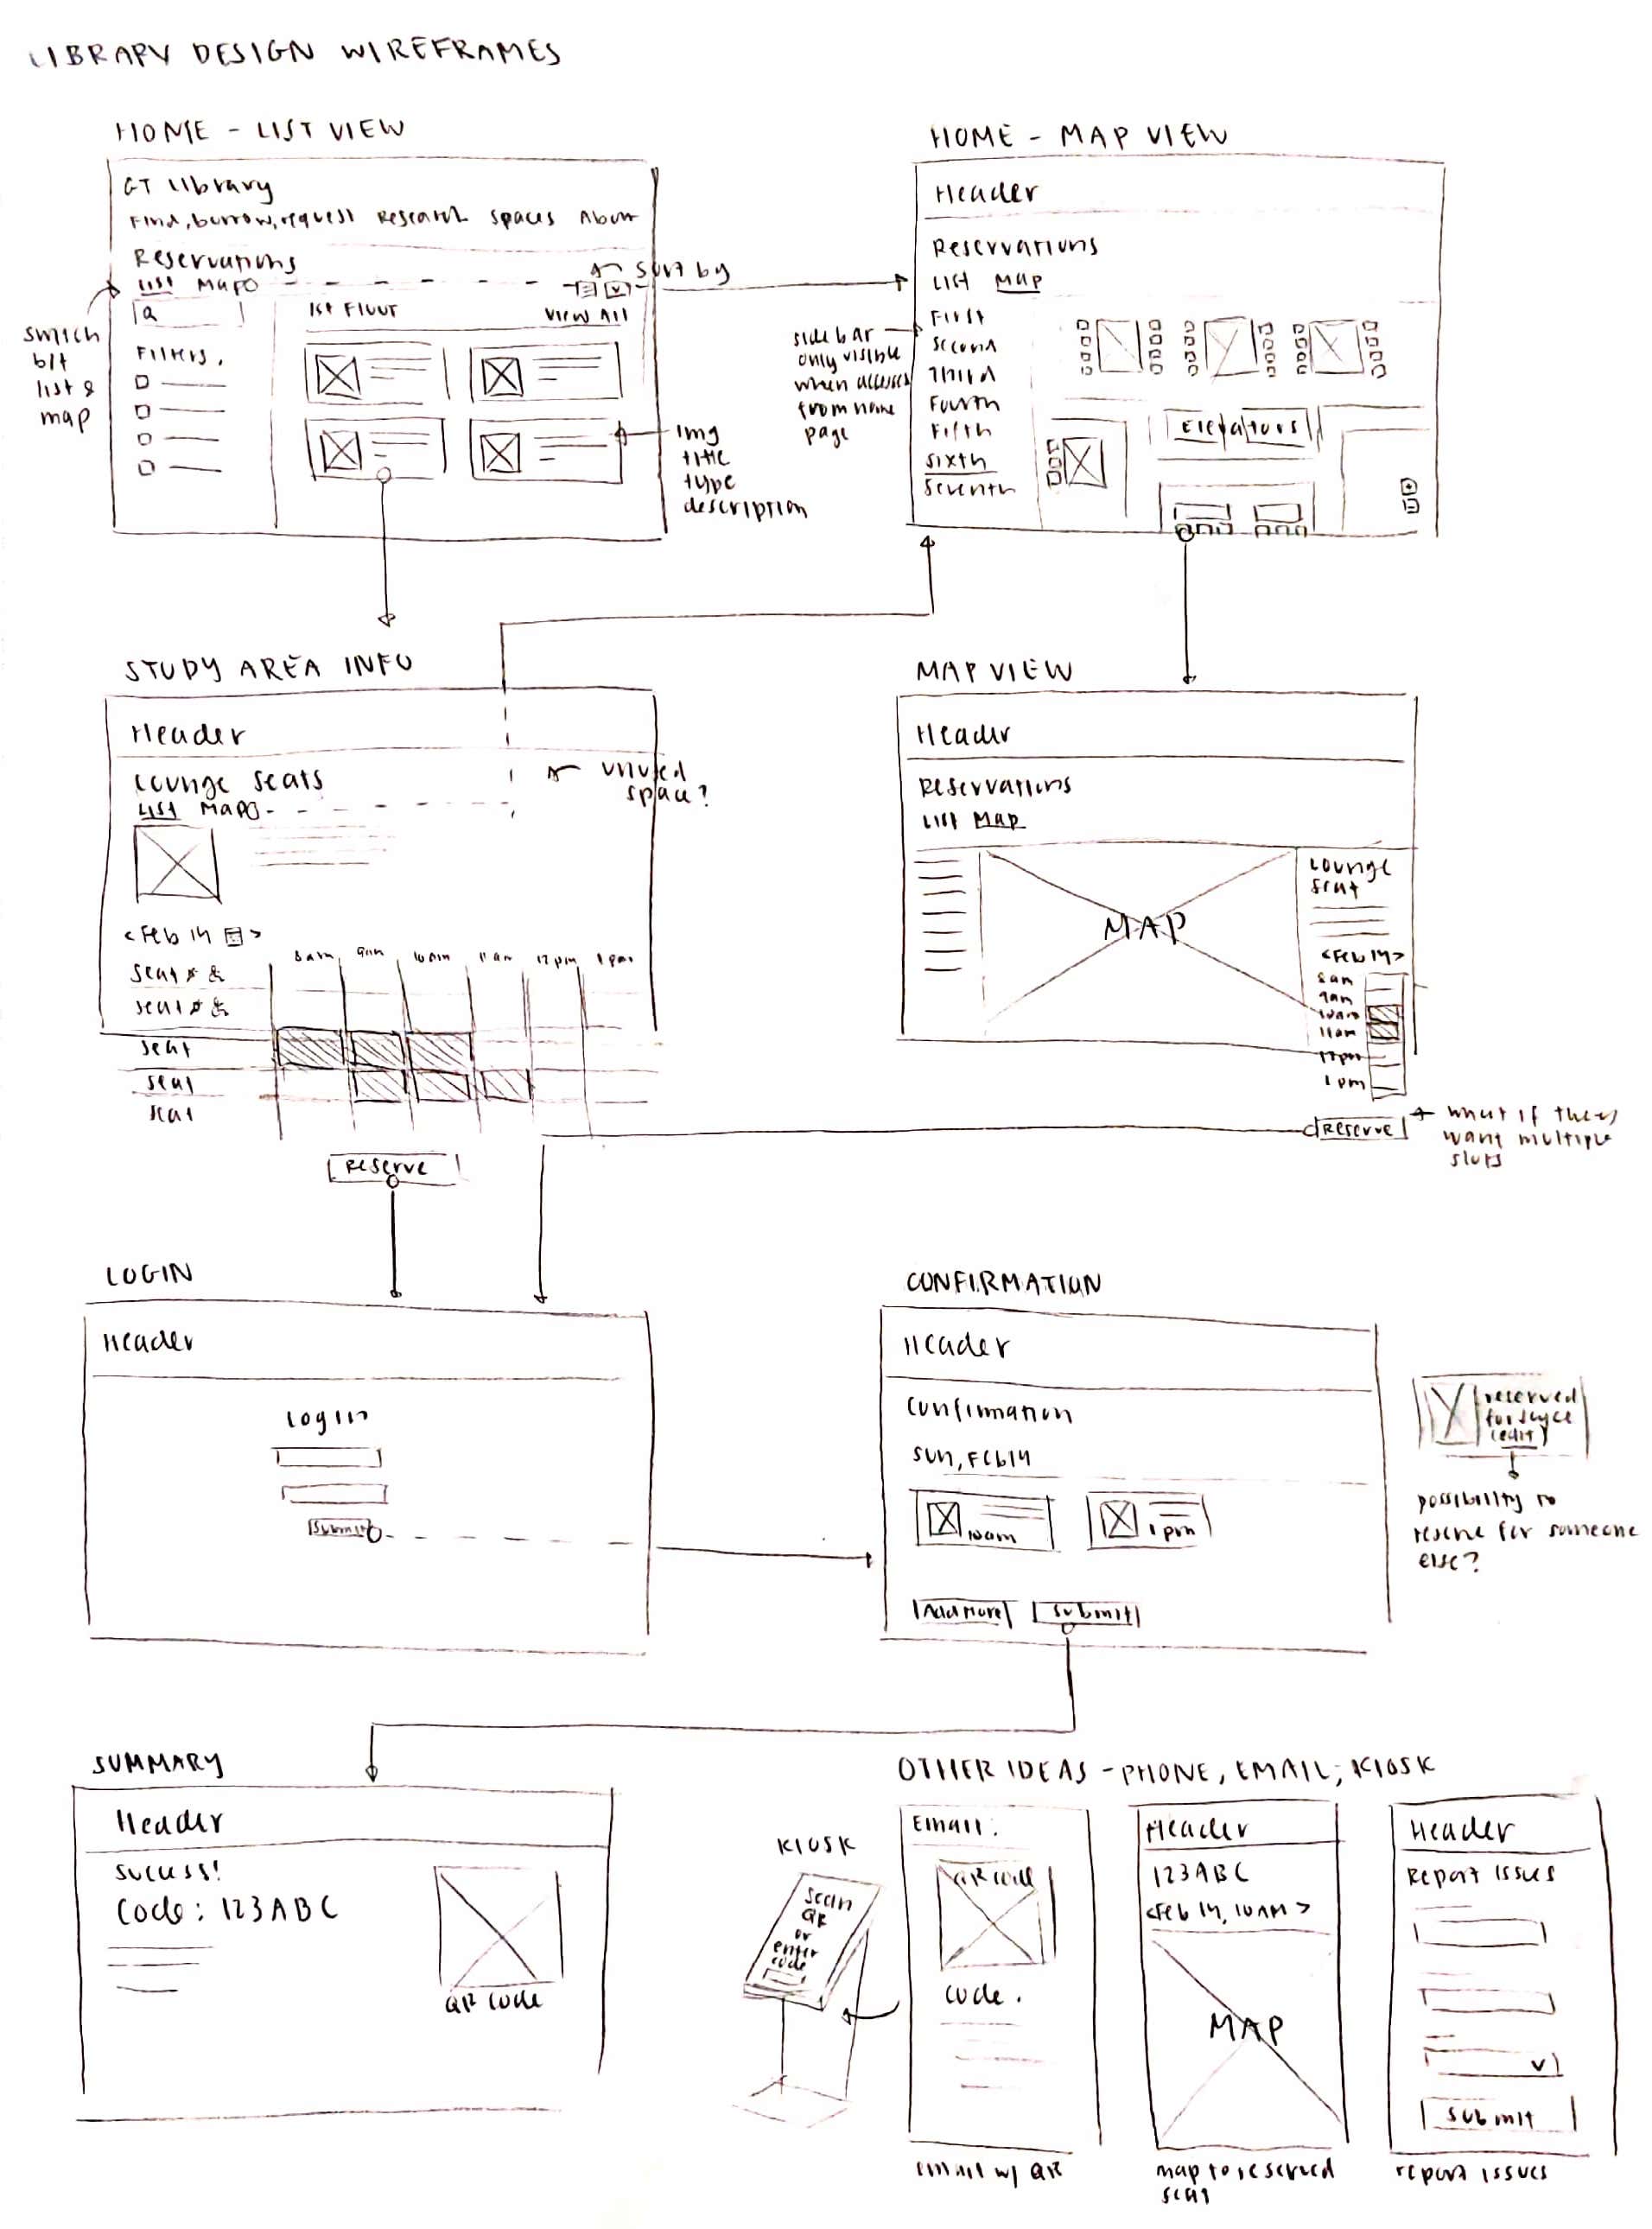 LIBRARY DESIGN WIREFRAMES
HOME - LIST VIEW
GT Library
Find, borrow, request Research Spaces About
Reservations
List Map
sort by
1st Floor
View All
Filters.
switch
b/t
list &
map
img
title
type
description
HOME - MAP VIEW
Header
Reservations
List Map
First
Second
Third
Fourth
Fifth
Sixth
Seventh
Elevators
side bar
only visible
when accessed
from home
page
STUDY AREA INFO
Header
Lounge Seats
List Map
unused
space?
<Feb 14 >
8am 9am 10am 11am 12pm 1pm
seat
seat
seat
seat
seat
Reserve
MAP VIEW
Header
Reservations
List Map
MAP
Lounge
Seat
<Feb 14>
8am
9am
10am
11am
12pm
1pm
Reserve
what if they
want multiple
slots
LOGIN
Header
Login
Submit
CONFIRMATION
Header
Confirmation
Sun, Feb 14
10am
1pm
Add More
Submit
reserved
for
(edit)
possibility to
reserve for someone
else?
SUMMARY
Header
Success!
Code: 123ABC
QR Code
OTHER IDEAS - PHONE, EMAIL, KIOSK
KIOSK
Scan
QR
or
enter
code
Email:
QR code
Code.
email w/ QR
Header
123ABC
<Feb 14, 10AM>
MAP
map to reserved
seat
Header
Report Issues
Submit
report issues